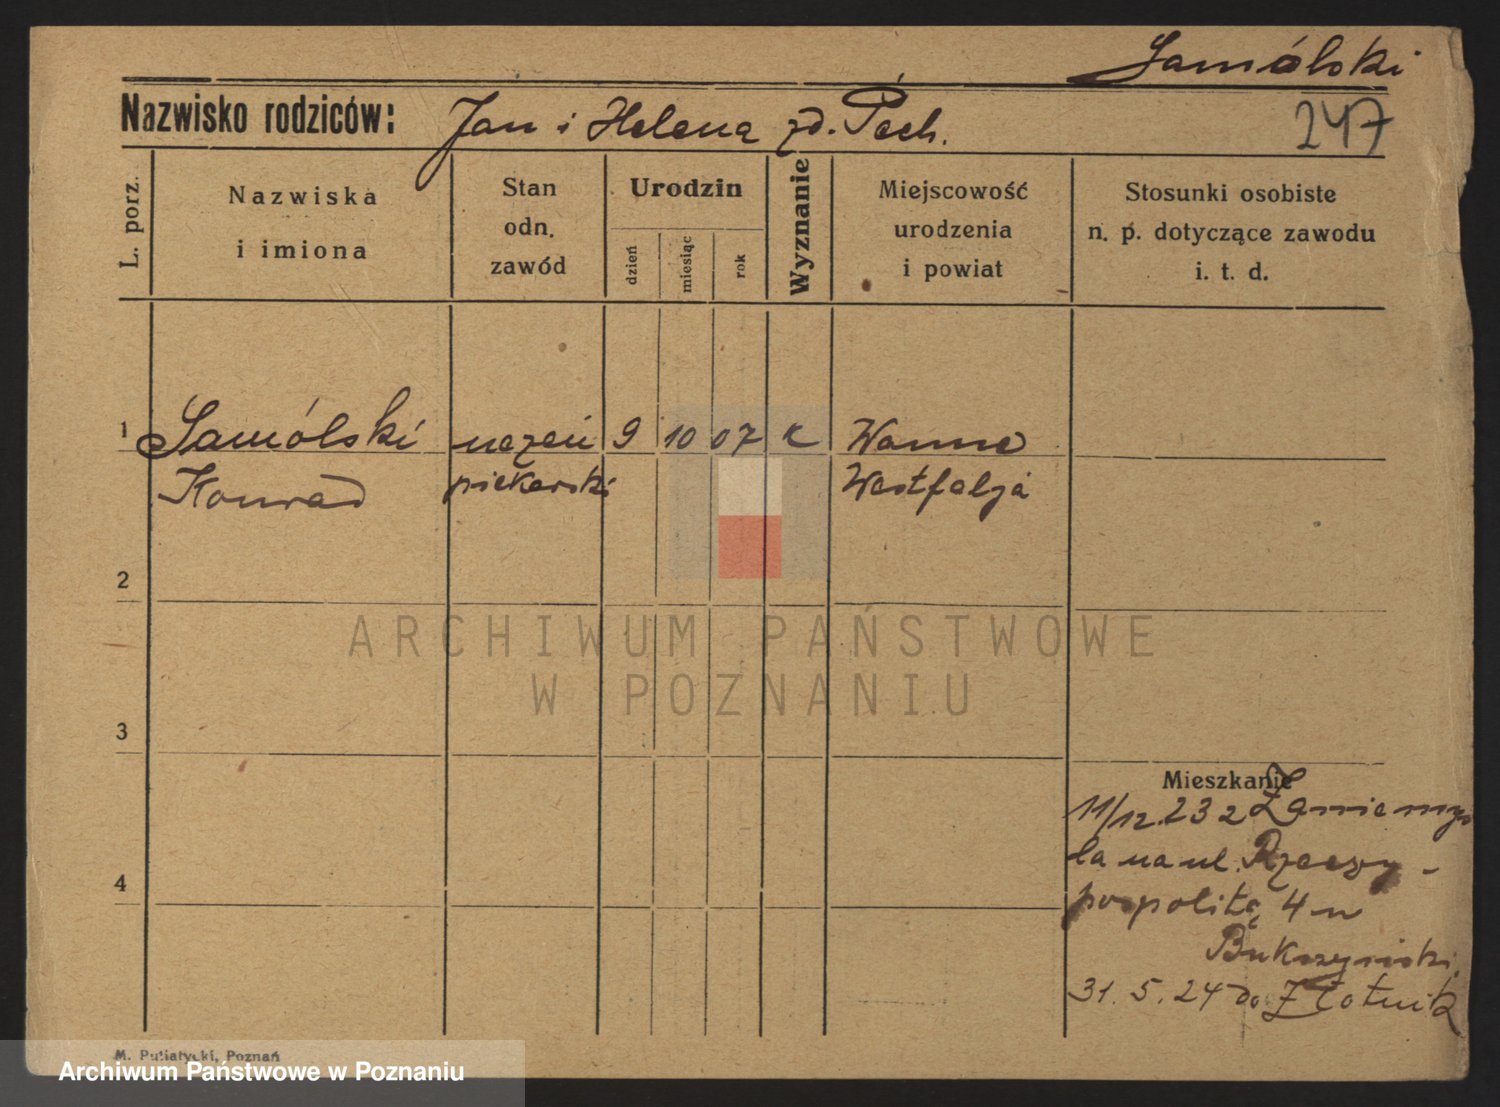 Samólski
Nazwisko rodziców: Jan i Helena zd. Pech.
247
L. porz.
Nazwiska
i imiona
Stan
odn.
zawód
Urodzin
dzień
miesiąc
rok
Wyznanie
Miejscowość
urodzenia
i powiat
Stosunki osobiste
n. p. dotyczące zawodu
i. t. d.
1 Samólski uczeń 9 10 07 k Wanne
Konrad piekarski Westfalja
2
ARCHIWUM PAŃSTWOWE
W POZNANIU
3
Mieszkanie
11/12.23 z Zaniemyś
la na ul. Rzeczy-
pospolitę 4 u
31.5.24 do Złotnik
4
M. Putiatycki, Poznań
Archiwum Państwowe w Poznaniu